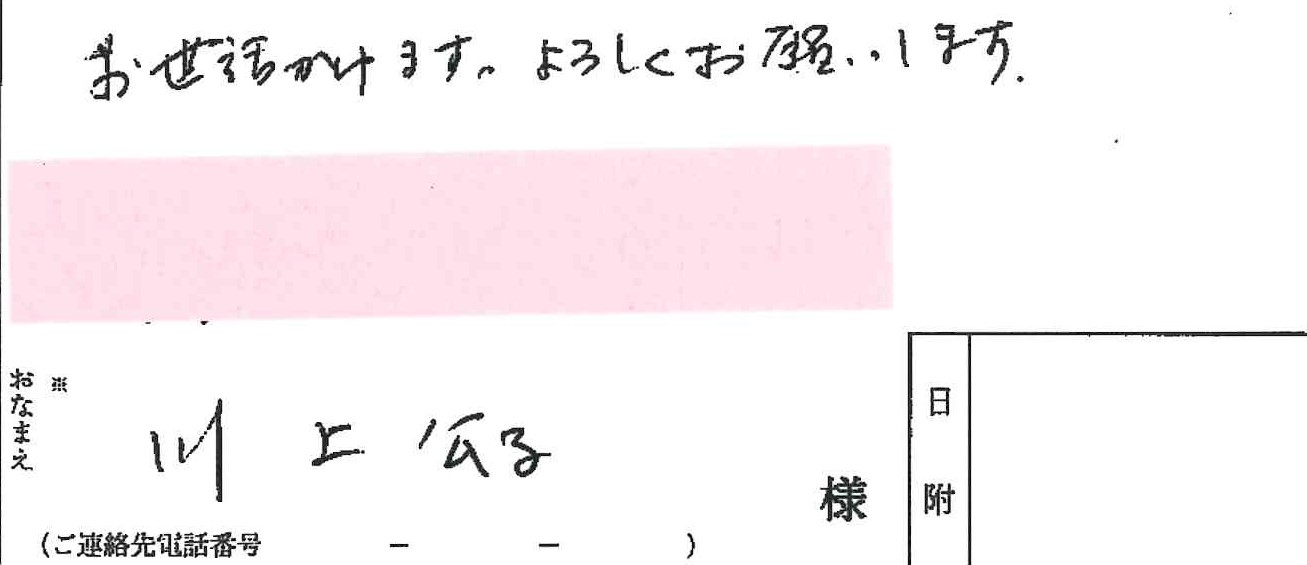 お世話かけます。よろしくお願いします.
おなまえ
※
川上公子
様
(ご連絡先電話番号 － － )
日附